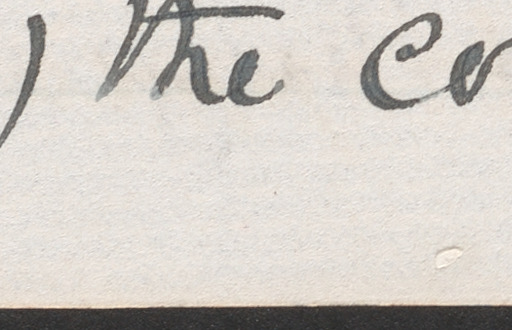 , the co